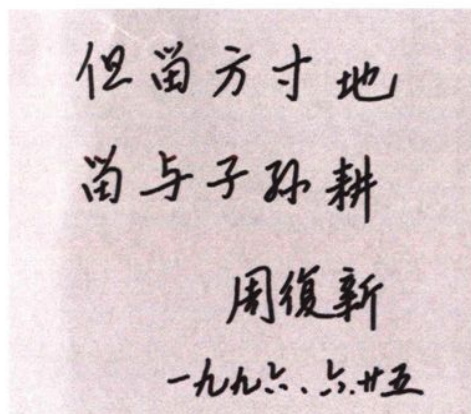 但畄方寸地
畄与子孙耕
周復新
一九九六.六.廿五